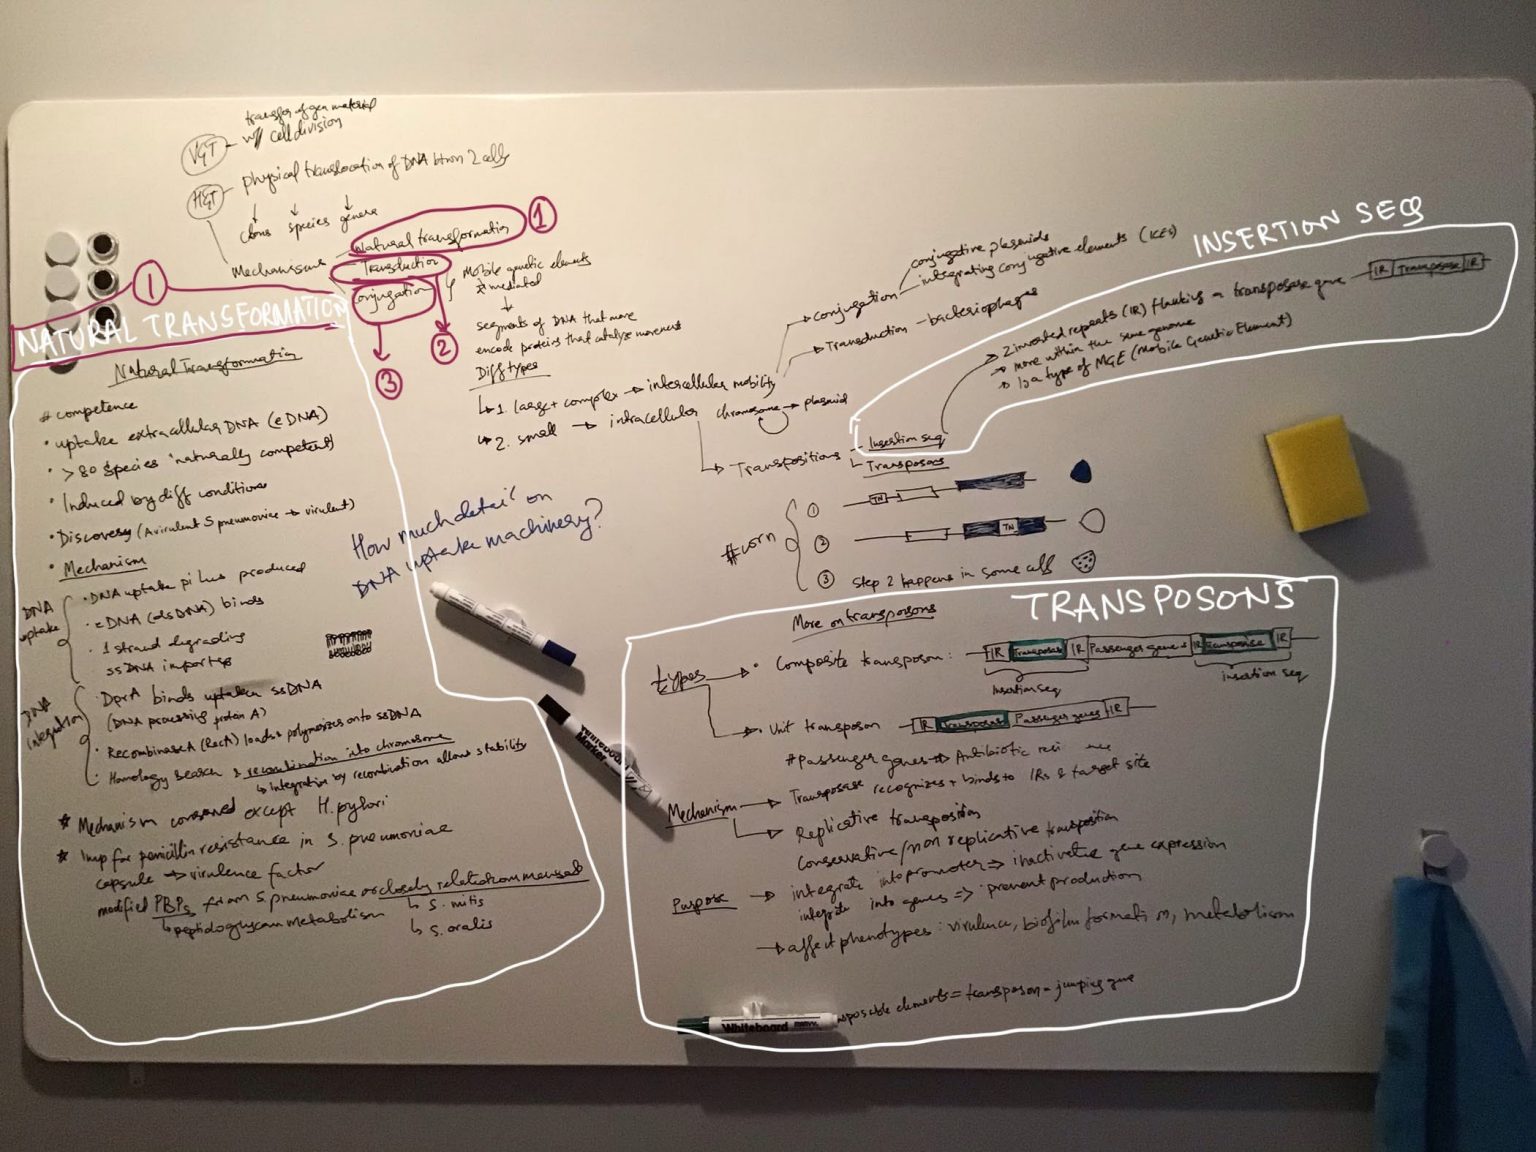 transfer of gen material
VGT - w/ cell division
HGT - physical translocation of DNA btwn 2 cells
clons species genera
Mechanisms
Natural transformation 1
Transduction
Conjugation
2
3
Mobile genetic elements
mediated
segments of DNA that more
encode proteins that catalyze movement
Diff types
1. large + complex → intercellular mobility
2. small → intracellular
chromosome → plasmid
→ conjugation
conjugative plasmids
integrating conjugative elements (ICEs)
→ Transduction - bacteriophages
→ Transpositions
- Insertion seq
Transposons
INSERTION SEQ
→ 2 inverted repeats (IR) flanking a transposase gene
IR Transposase IR
→ move within the same genome
→ Is a type of MGE (Mobile Genetic Element)
# corn
1 TN
2 TN
3 Step 2 happens in some cells
1
NATURAL TRANSFORMATION
Natural Transformation
# competence
• uptake extracellular DNA (eDNA)
• > 80 species 'naturally competent)
• Induced by diff conditions
• Discovery (Avirulent S pneumoniae → virulent)
• Mechanism
DNA uptake
• DNA uptake pilus produced
• eDNA (dsDNA) binds
• 1 strand degrading
ssDNA imported
DNA integration
• DprA binds uptaken ssDNA
(DNA processing protein A)
• Recombinase A (RecA) loads & polymerizes onto ssDNA
• Homology search & recombination into chromosome
↳ integration by recombination allows stability
* Mechanism conserved except H. pylori
* Imp for penicillin resistance in S. pneumoniae
capsule → virulence factor
modified PBPs from S. pneumoniae or closely related commensals
↳ peptidoglycan metabolism
↳ S. mitis
↳ S. oralis
How much detail on
DNA uptake machinery?
TRANSPOSONS
More on transposons
types → • Composite transposon:
IR Transposase IR Passenger genes IR Transposase IR
insertion seq
insertion seq
• Unit transposon
IR Transposase Passenger genes IR
# Passenger genes → Antibiotic
Mechanism → Transposase recognizes + binds to IRs & target site
→ Replicative transposition
Conservative/non replicative transposition
Purpose → integrate into promoter ⇒ inactivate gene expression
integrate into genes ⇒ prevent production
→ affect phenotypes: virulence, biofilm formation, metabolism
elements = transposon = jumping gene
Whiteboard
Whiteboard
Marker